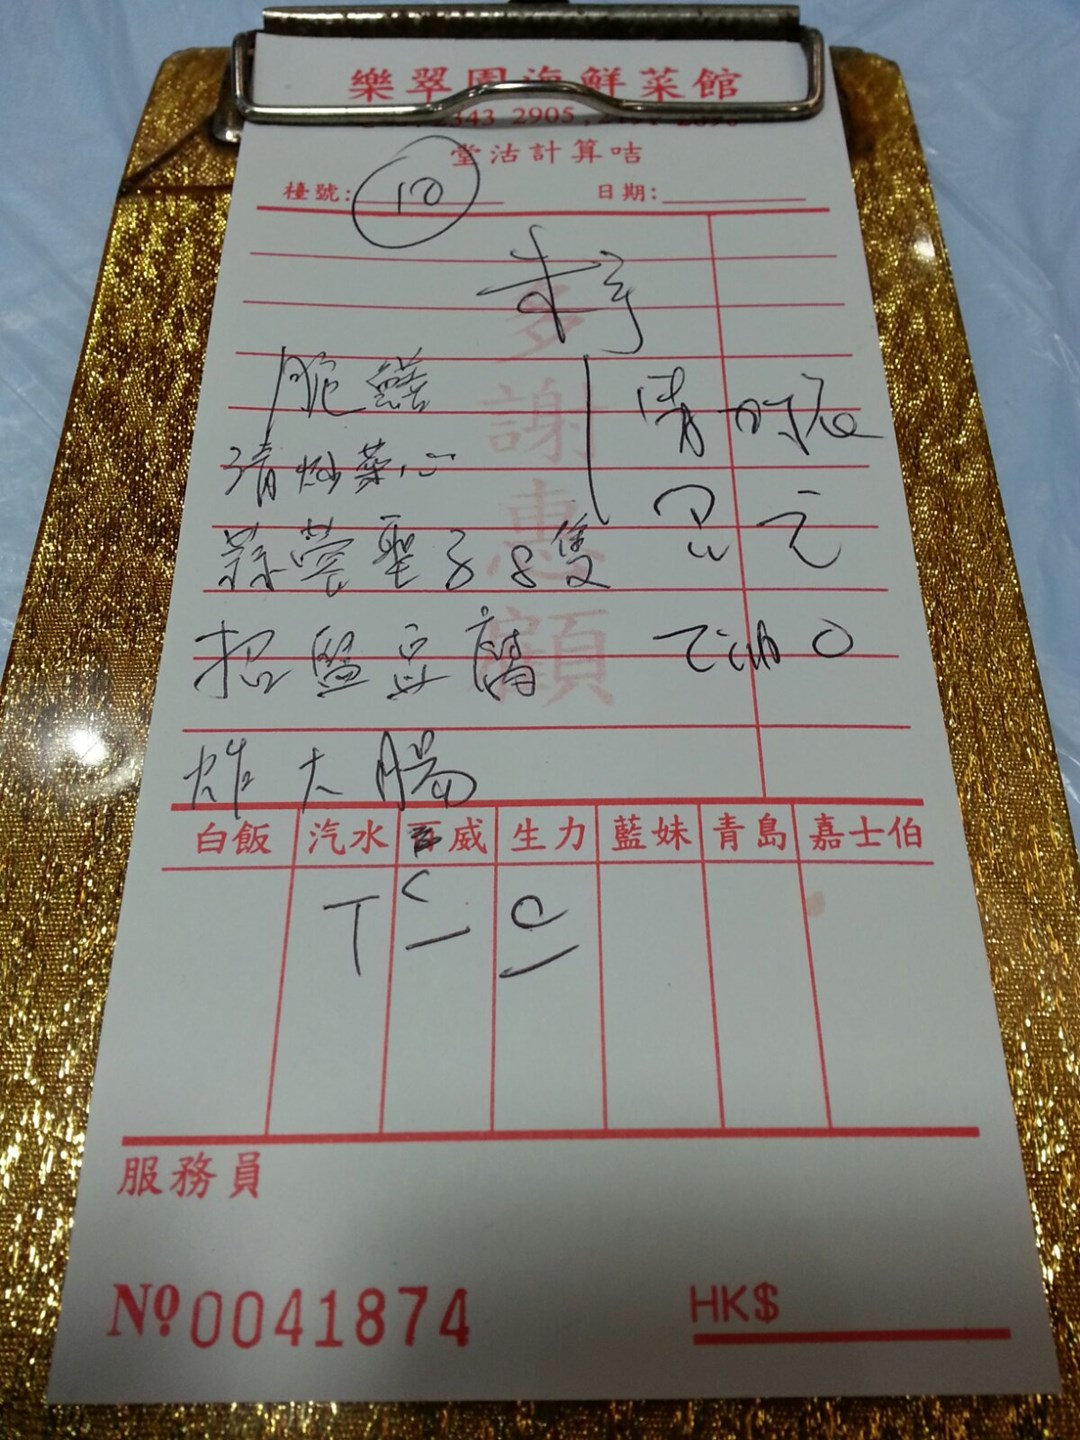 樂翠園海鮮菜館
2343 2905
堂沽計算咭
檯號: 10
日期:
多謝惠顧
脆鱔
清炒菜心
蒜蓉聖子8隻
招盤豆腐
炸大腸
白飯 汽水 威 生力 藍妹 青島 嘉士伯
T
服務員
Nº 0041874
HK$